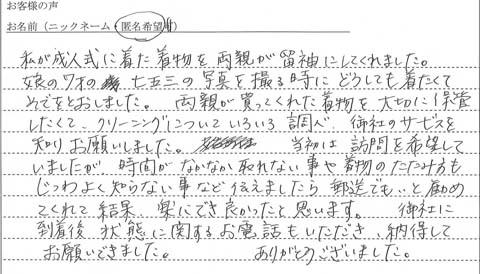 お客様の声
お名前（ニックネーム・匿名希望）
私が成人式に着た着物を両親が留袖にしてくれました。
娘の7才の 七五三の写真を撮る時にどうしても着たくて
そでをとおしました。 両親が買ってくれた着物を大切に保管
したくて、クリーニングについていろいろ調べ、御社のサービスを
知りお願いしました。 当初は訪問を希望して
いましたが、時間がなかなか取れない事や着物のたたみ方も
じつわよく知らない事など伝えましたら郵送でもいいと勧め
てくれて結果、楽にでき良かったと思います。 御社に
到着後、状態に関するお電話もいただき、納得して
お願いできました。 ありがとうございました。